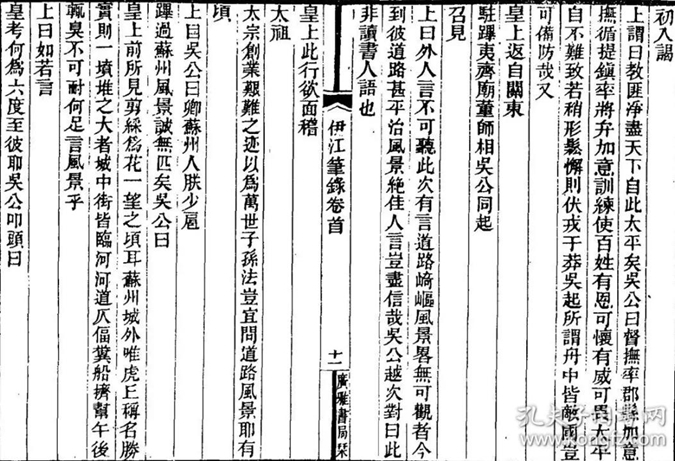 初入謁
上謂曰教匪淨盡天下自此太平矣吳公曰督撫率郡縣加意
撫循提鎮率將弁加意訓練使百姓有恩可懷有威可畏太平
自不難致若稍形鬆懈則伏戎于莽吳起所謂舟中皆敵國豈
可備防哉又
皇上返自關東
駐蹕夷齊廟董師相吳公同起
召見
上曰外人言不可聽此次有言道路崎嶇風景畧無可觀者今
到彼道路甚平治風景絶佳人言豈盡信哉吳公越次對曰此
非讀書人語也
伊江筆錄卷首
十一
廣雅書局栞
皇上此行欲面稽
太祖
太宗創業艱難之迹以為萬世子孫法豈宜問道路風景耶有
頃
上目吳公曰卿蘇州人朕少扈
蹕過蘇州風景誠無匹矣吳公曰
皇上前所見剪綵為花一望之頃耳蘇州城外唯虎丘稱名勝
實則一墳堆之大者城中街皆臨河河道仄偪糞船擠幫午後
輒臭不可耐何足言風景乎
上曰如若言
皇考何為六度至彼耶吳公叩頭曰
孔夫子舊書網
kongfz.com